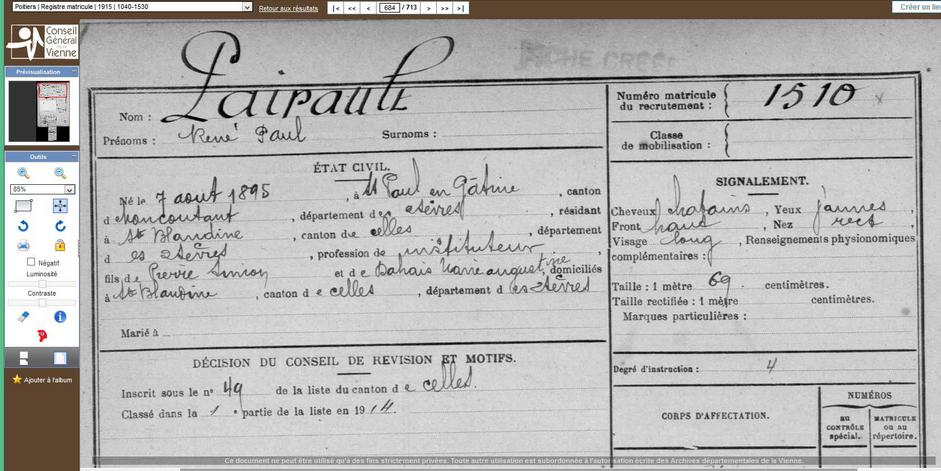 Poitiers | Registre matricule | 1915 | 1040-1530
Retour aux résultats
|< << < 684 / 713 > >> >|
Créer un lie
Conseil
Général
de la
Vienne
Prévisualisation
Outils
85%
Négatif
Luminosité
Contraste
Ajouter à l'album
FICHE CRÉÉE
Nom : Lairault
Prénoms : René Paul Surnoms :
Numéro matricule du recrutement : 1510
Classe de mobilisation :
ÉTAT CIVIL.
Né le 7 aout 1895, à St Paul en Gâtine, canton
d e Moncoutant, département d es 2 sèvres, résidant
à Ste Blandine, canton d e celles, département
d es 2 Sèvres, profession de instituteur,
fils de Pierre Simon et de Marie augustine, domiciliés
à Ste Blandine, canton d e celles, département d es 2 Sèvres
Marié à
SIGNALEMENT.
Cheveux chatains, Yeux jaunes,
Front haut, Nez rect
Visage long, Renseignements physionomiques
complémentaires :
Taille : 1 mètre 69 centimètres.
Taille rectifiée : 1 mètre centimètres.
Marques particulières :
Degré d'instruction : 4
DÉCISION DU CONSEIL DE REVISION ET MOTIFS.
Inscrit sous le n° 49 de la liste du canton d e celles.
Classé dans la 1e partie de la liste en 1914.
CORPS D'AFFECTATION.
NUMÉROS
au CONTRÔLE spécial.
MATRICULE ou au répertoire.
Ce document ne peut être utilisé qu'à des fins strictement privées. Toute autre utilisation est subordonnée à l'autorisation écrite des Archives départementales de la Vienne.